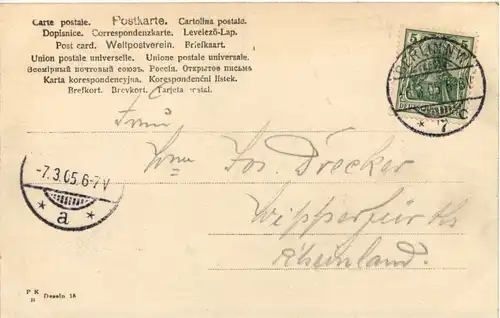 Carte postale. Postkarte. Cartolina postale.
Dopisnice. Correspondenzkarte. Levelező-Lap.
Post card. Weltpostverein. Brefkaart.
Union postale universelle. Unione postale universale.
Всемірный почтовый союзъ. Россія. Открытое письмо
Karta korespondencyjna. Korespondenční lístek.
Brefkort. Brevkort. Tarjeta postal.
5 5
7 C
Frau
Wwe Jos. Drecker
Wipperfürth
Rheinland.
-7.3.05.6-7V
* a *
P K
B
Dessin 18